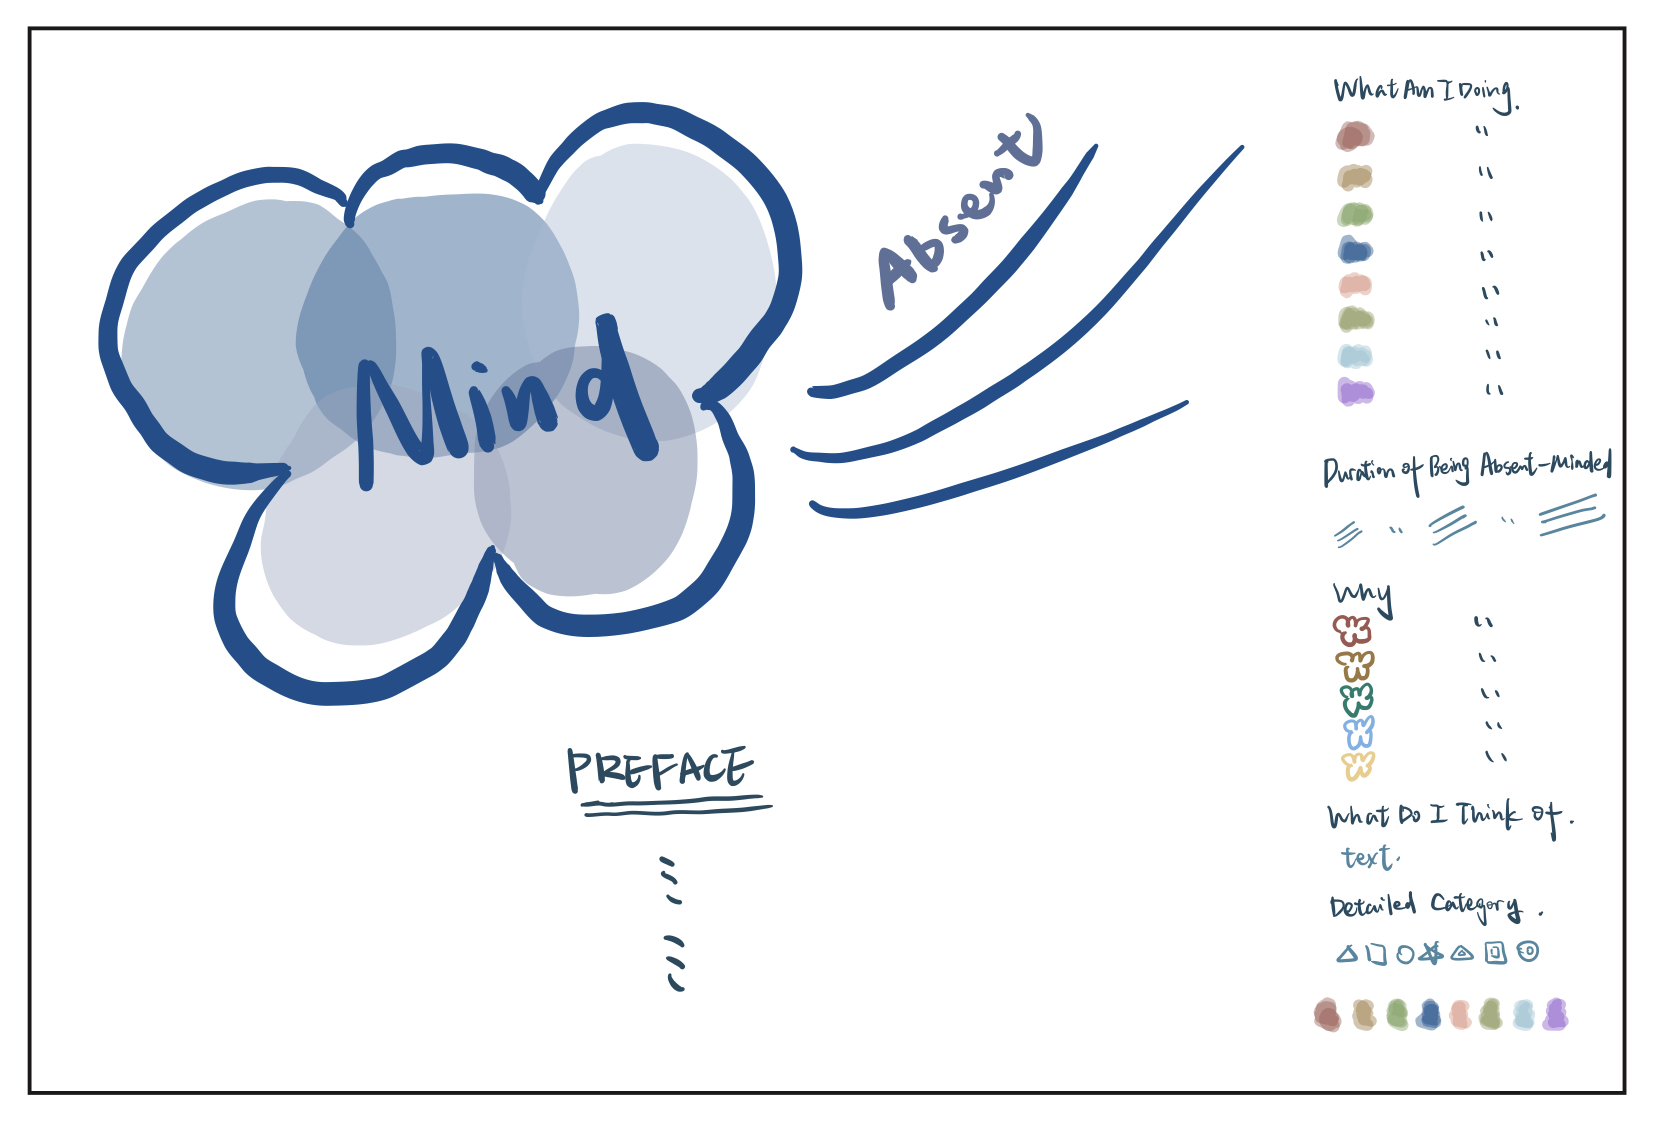 Absent
Mind
PREFACE
What Am I Doing.
Duration of Being Absent-Minded
Why
What Do I Think Of.
text.
Detailed Category.